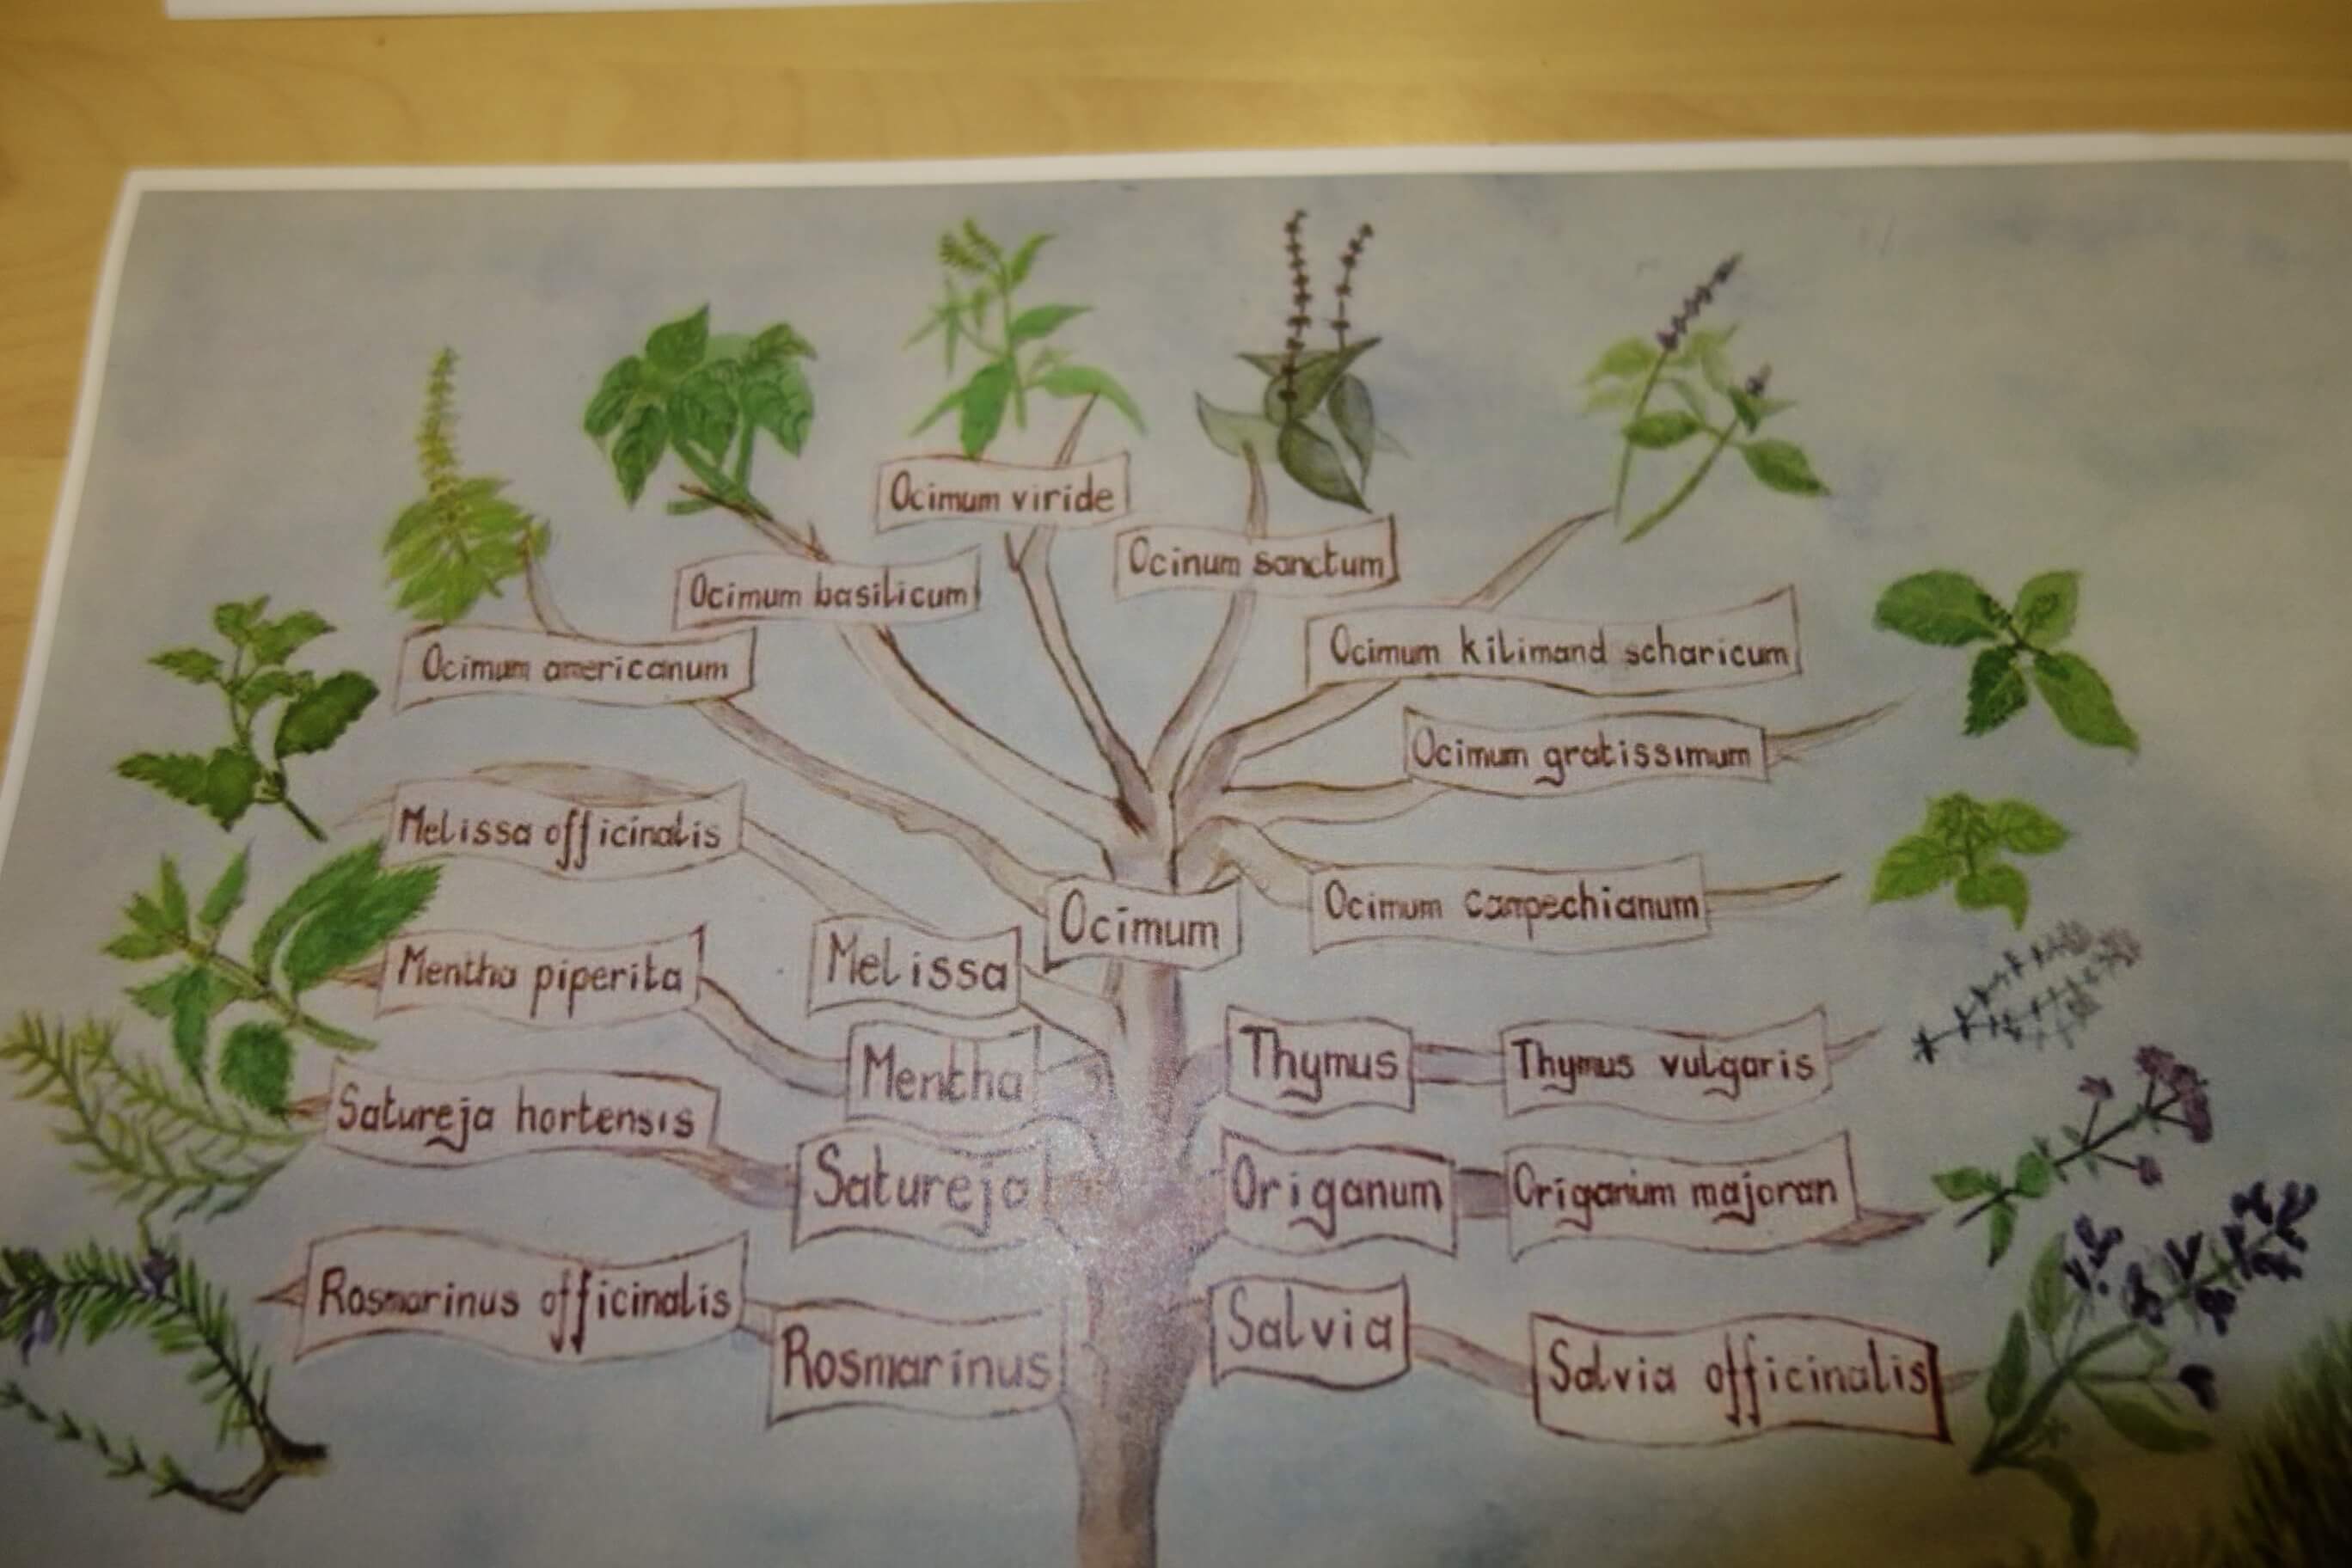 Ocimum viride
Ocinum sanctum
Ocimum basilicum
Ocimum americanum
Ocimum kilimand scharicum
Ocimum gratissimum
Melissa officinalis
Ocimum campechianum
Ocimum
Melissa
Mentha piperita
Mentha
Thymus
Thymus vulgaris
Satureja hortensis
Satureja
Origanum
Origanum majoran
Rosmarinus officinalis
Rosmarinus
Salvia
Salvia officinalis